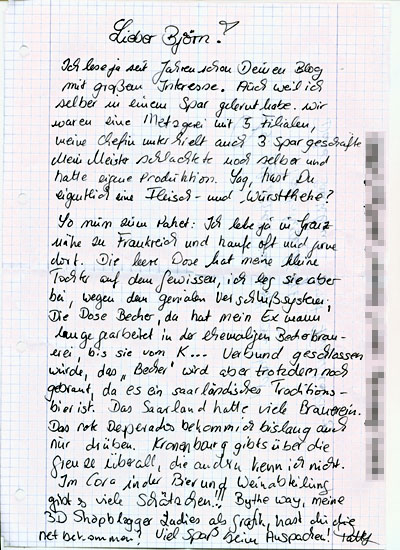 Lieber Björn!
Ich lese ja seit Jahren schon Deinen Blog
mit großem Interesse. Auch weil ich
selber in einem Spar gelernt habe. Wir
waren eine Metzgerei mit 5 Filialen,
meine Chefin unterhielt auch 3 Spargeschäfte
Mein Meister schlachtete noch selber und
hatte eigene Produktion. Sag, hast Du
eigentlich eine Fleisch- und Wursttheke?
So nun zum Paket: Ich lebe ja in Grenz-
nähe zu Frankreich und kaufe oft und gerne
dort. Die leere Dose hat meine kleine
Tochter auf dem Gewissen, ich leg sie aber
bei, wegen dem genialen Verschlußsystem.
Die Dose Becher, da hat mein Exmann
lange gearbeitet in der ehemaligen Becherbrau-
erei, bis sie vom K... Verbund geschlossen
würde, das "Becher" wird aber trotzdem noch
gebraut, da es ein saarländisches Traditions-
bier ist. Das Saarland hatte viele Brauereien.
Das rote Desperados bekomm ich bislang auch
nur drüben. Kronenbourg gibts über die
Grenze überall, die andren kenn ich nicht.
Im Cora in der Bier und Weinabteilung
gibt es viele Schätzchen!!! By the way, meine
3D Shopblogger Ladies als Grafik, hast du die
net bekommen? Viel Spaß beim Auspacken!